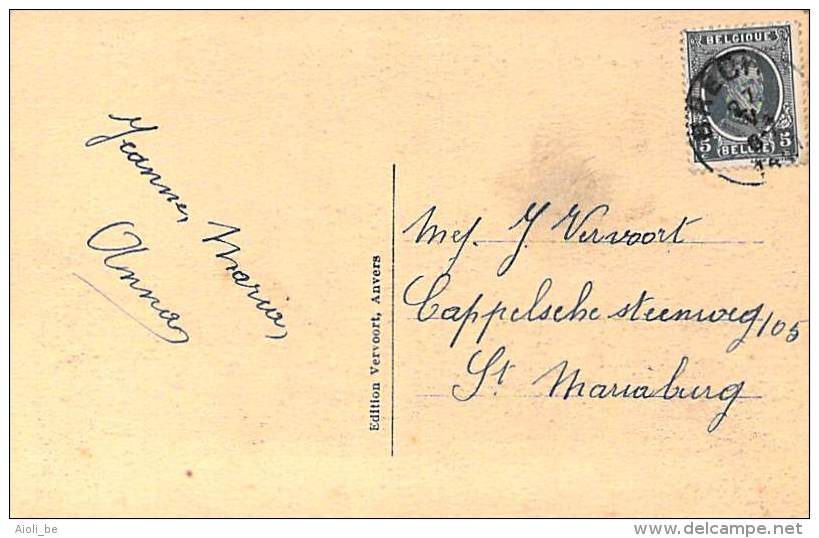 BELGIQUE
BRECH
5 BELGIË 5
Jeanne, Maria,
Anna,
Edition Vervoort, Anvers
Mej. J. Vervoort
Cappelsche steenweg 105
St Mariaburg
Aioli_be
delcampe.net